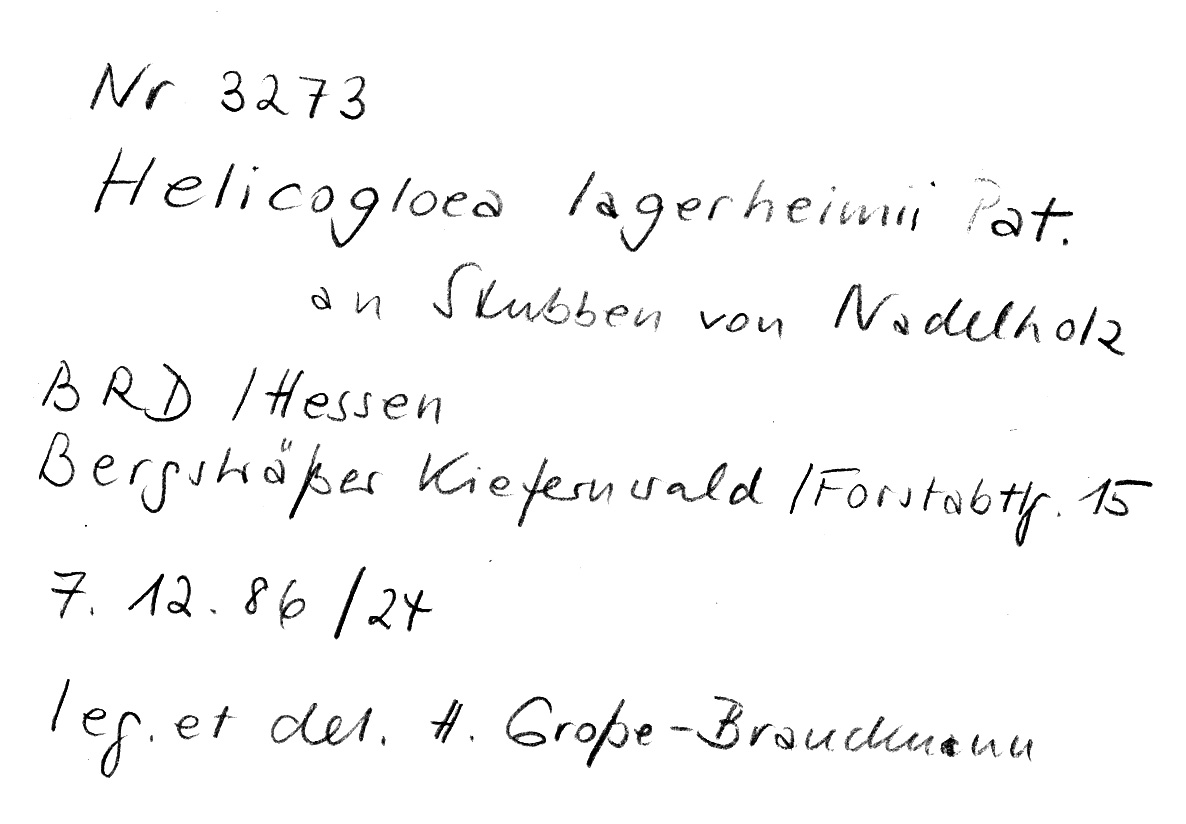 Nr 3273
Helicogloea lagerheimii Pat.
an Stubben von Nadelholz
BRD / Hessen
Bergsträßer Kiefernwald / Forstabtlg. 15
7. 12. 86 / 24
leg. et det. H. Große-Brauckmann